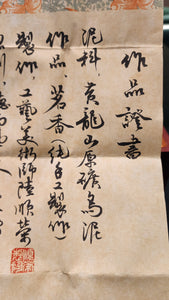 作品證書
泥料，黃龍山原礦烏泥
作品，茗香（純手工製作）
製作，工藝美術師陸順榮